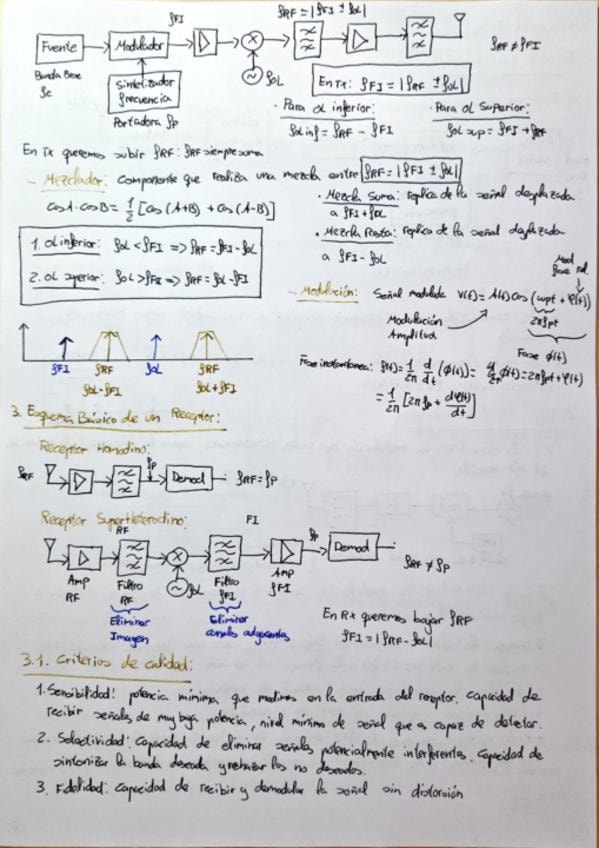 fRF = |fFI ± fOL|
fFI
Fuente
Modulador
fRF ≠ fFI
Banda Base
fc
Sintetizador
frecuencia
fOL
En Tx: fFI = |fRF ± fOL|
Portadora fp
· Para OL inferior:
fOL inf = fRF - fFI
· Para OL Superior:
fOL sup = fFI + fRF
En Tx queremos subir fRF: fRF siempre suma
- Mezclador: Componente que realiza una mezcla entre fRF = |fFI ± fOL|
cosA·cosB = 1/2 [cos (A+B) + cos (A-B)]
· Mezcla Suma: replica de la señal desplazada
a fFI + fOL
· Mezcla Resta: replica de la señal desplazada
a fFI - fOL
1. OL inferior: fOL < fFI => fRF = fFI - fOL
2. OL superior: fOL > fFI => fRF = fOL - fFI
- Modulación: Señal modulada V(t) = A(t) cos (wpt + φ(t))
Modulación
Amplitud
2πfpt
Fase ϕ(t)
fFI
fRF
fOL
fRF
fOL - fFI
fOL + fFI
Fase instantánea: f(t) = 1/2π d/dt (ϕ(t)) = d/2π ϕ(t) = 2πfpt + φ(t)
= 1/2π [2πfp + dφ(t)/dt]
3. Esquema Básico de un Receptor:
Receptor Homodino:
fRF
fp
Demod
fRF = fp
Receptor SuperHeterodino:
RF
FI
fp
Demod
fRF ≠ fp
Amp
RF
Filtro
RF
fOL
Filtro
fFI
Amp
fFI
Eliminar
Imagen
Eliminar
canales adyacentes
En Rx queremos bajar fRF
fFI = |fRF - fOL|
3.1. Criterios de calidad:
1. Sensibilidad: potencia mínima que medimos en la entrada del receptor. capacidad de
recibir señales de muy baja potencia, nivel mínimo de señal que es capaz de detectar.
2. Selectividad: Capacidad de eliminar señales potencialmente interferentes. Capacidad de
sintonizar la banda deseada y rechazar las no deseadas.
3. Fidelidad: Capacidad de recibir y demodular la señal sin distorsión